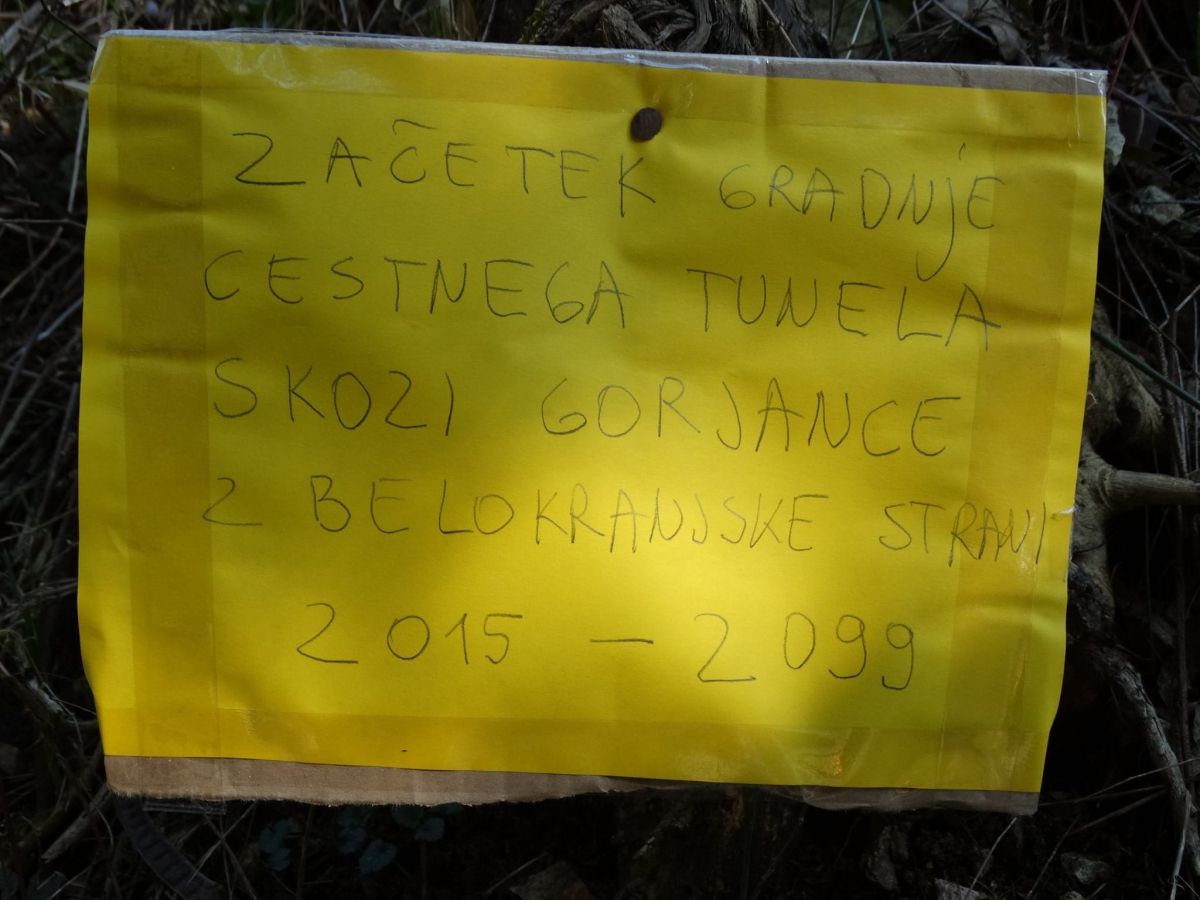 ZAČETEK GRADNJE
CESTNEGA TUNELA
SKOZI GORJANCE
Z BELOKRANJSKE STRANI
2015 – 2099